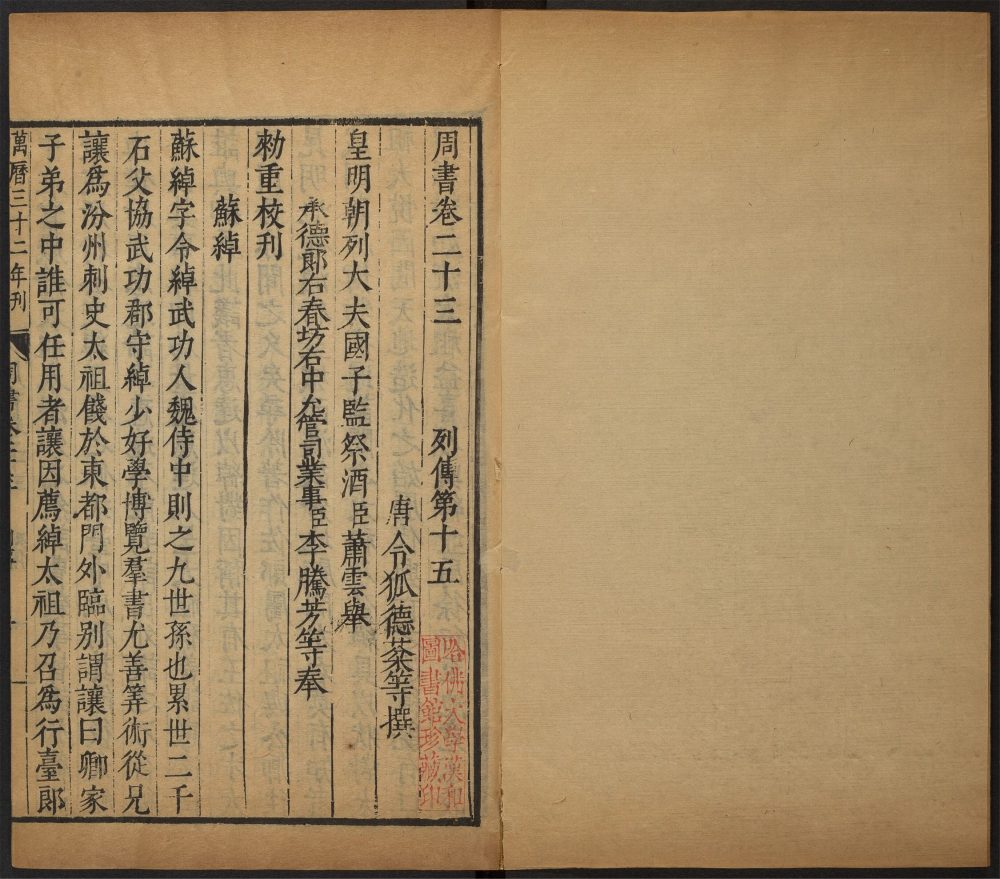 周書卷二十三 列傳第十五
唐令狐德棻等撰
皇明朝列大夫國子監祭酒臣蕭雲舉
承德郎右春坊右中允管司業事臣李騰芳等奉
勑重校刊
蘇綽
蘇綽字令綽武功人魏侍中則之九世孫也累世二千
石父協武功郡守綽少好學博覽羣書尤善筭術從兄
讓爲汾州刺史太祖餞於東都門外臨别謂讓曰卿家
子弟之中誰可任用者讓因薦綽太祖乃召爲行臺郎
萬曆三十二年刊
哈佛大學漢和
圖書館珍藏印